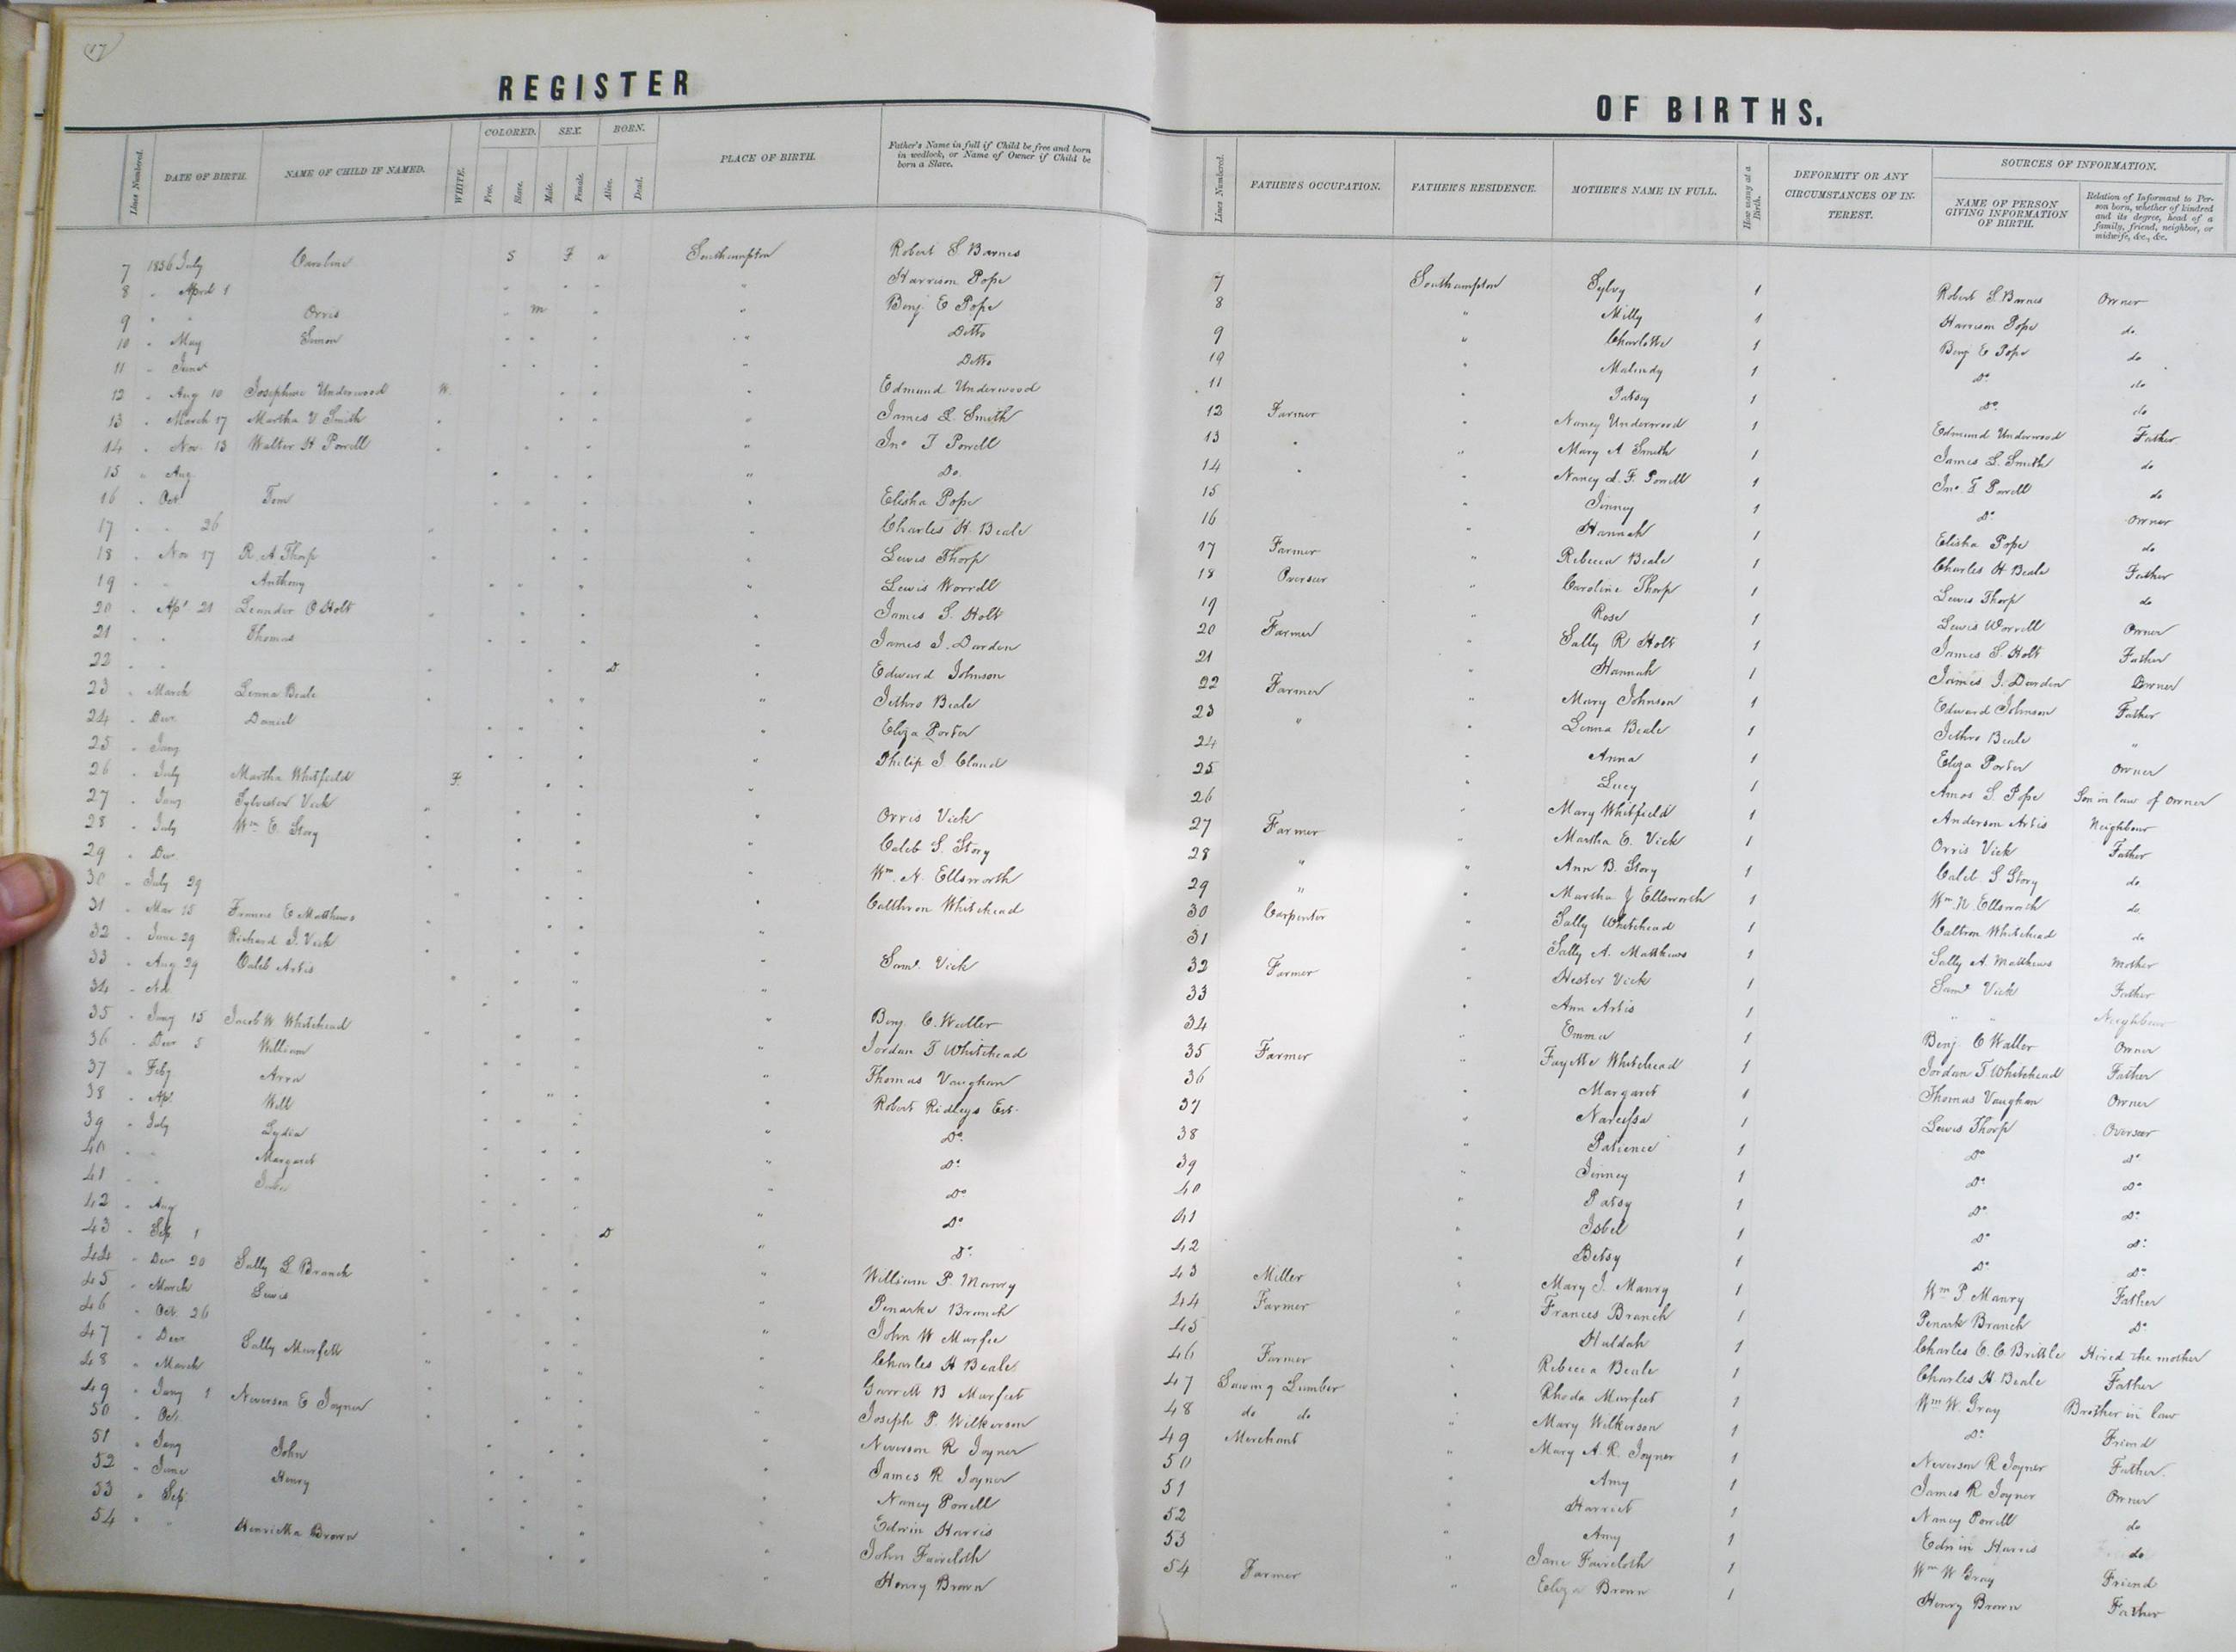 17
REGISTER
Lines Numbered. DATE OF BIRTH. NAME OF CHILD IF NAMED. WHITE. COLORED. Free. Slave. SEX. Male. Female. BORN. Alive. Dead. PLACE OF BIRTH. Father's Name in full if Child be free and born in wedlock, or Name of Owner if Child be born a Slave.
7 1856 July Caroline S F a Southampton Robert S Barnes
8 " April 1 " Harrison Pope
9 " " Orris m " Benj. E Pope
10 " May Simon " Ditto
11 " June " Ditto
12 " Aug 10 Josephine Underwood W. " Edmund Underwood
13 " March 17 Martha V Smith " James L. Smith
14 " Nov. 13 Walter H Powell " Jno T Powell
15 " Aug " Do.
16 " Oct Tom " Elisha Pope
17 " " 26 " Charles H. Beale
18 " Nov 17 R. A Thorp " Lewis Thorp
19 " " Anthony " Lewis Worrell
20 " Apl 21 Leander O Holt " James S. Holt
21 " " Thomas " James J. Darden
22 " " D " Edward Johnson
23 " March Lenna Beale " Jethro Beale
24 " Decr Daniel " Eliza Porter
25 " Jany " Philip J. Claud
26 " July Martha Whitfield F. "
27 " Jany Sylvester Vick " Orris Vick
28 " July Wm E. Story " Caleb S. Story
29 " Decr " Wm. N. Ellsworth
30 " July 29 " Calthron Whitehead
31 " Mar 15 Frances E Matthews "
32 " June 29 Richard J. Vick " Saml Vick
33 " Aug 29 Caleb Artis "
34 " " Benj. C. Waller
35 " Jany 15 Jacob W Whitehead " Jordan T Whitehead
36 " Decr 5 William " Thomas Vaughan
37 " Feby Arra " Robert Ridleys Est.
38 " Ap. Will " Do
39 " July Lydia " Do
40 " " Margaret " Do
41 " " " Do
42 " Aug " Do
43 " Sep 1 D " William P. Manry
44 " Decr 20 Sally L Branch " Penarke Branch
45 " March Lewis " John W Murfee
46 " Oct. 26 " Charles H Beale
47 " Decr Sally Murfett " Garrett B Murfeet
48 " March " Joseph P. Wilkerson
49 " Jany 1 Neverson E Joyner " Neverson R Joyner
50 " Oct. " James R Joyner
51 " Jany John " Nancy Powell
52 " June Henry " Edwin Harris
53 " Sep " John Faircloth
54 " " Henrietta Brown " Henry Brown
OF BIRTHS.
Lines Numbered. FATHER'S OCCUPATION. FATHER'S RESIDENCE. MOTHER'S NAME IN FULL. How many at a Birth. DEFORMITY OR ANY CIRCUMSTANCES OF INTEREST. SOURCES OF INFORMATION. NAME OF PERSON GIVING INFORMATION OF BIRTH. Relation of Informant to Person born, whether of kindred and its degree, head of a family, friend, neighbor, or midwife, &c., &c.
7 Southampton Sylvy 1 Robert S Barnes Owner
8 " Milly 1 Harrison Pope do
9 " Charlotte 1 Benj E Pope do
10 " Malindy 1 Do do
11 " Patsey 1 Do do
12 Farmer " Nancy Underwood 1 Edmund Underwood Father
13 " " Mary A Smith 1 James L. Smith do
14 " " Nancy d. F. Powell 1 Jno. T Powell do
15 " Jinney 1 Do owner
16 " Hannah 1 Elisha Pope do
17 Farmer " Rebecca Beale 1 Charles H Beale Father
18 Overseer " Caroline Thorp 1 Lewis Thorp do
19 " Rose 1 Lewis Worrell Owner
20 Farmer " Sally R Holt 1 James S. Holt Father
21 " Hannah 1 James J. Darden Owner
22 Farmer " Mary Johnson 1 Edward Johnson Father
23 " " Lenna Beale 1 Jethro Beale "
24 " Anna 1 Eliza Porter owner
25 " Lucy 1 Amos S. Pope Son in law of owner
26 " Mary Whitfield 1 Anderson Artis Neighbour
27 Farmer " Martha E. Vick 1 Orris Vick Father
28 " " Ann B. Story 1 Caleb S. Story do
29 " " Martha J Ellsworth 1 Wm. N. Ellsworth do
30 Carpenter " Sally Whitehead 1 Caltron Whitehead do
31 " Sally A. Matthews 1 Sally A. Matthews Mother
32 Farmer " Hester Vick 1 Saml Vick Father
33 " Ann Artis 1 " " Neighbour
34 " Emma 1 Benj. C Waller Owner
35 Farmer " Fayette Whitehead 1 Jordan T Whitehead Father
36 " Margaret 1 Thomas Vaughan Owner
37 " Narcissa 1 Lewis Thorp Overseer
38 " Patience 1 Do Do
39 " Jinney 1 Do Do
40 " Patsy 1 Do Do
41 " Isbel 1 Do Do
42 " Betsy 1 Do Do
43 Miller " Mary J. Manry 1 Wm P Manry Father
44 Farmer " Frances Branch 1 Penark Branch Do
45 " Huldah 1 Charles E. C. Brittle Hired the mother
46 Farmer " Rebecca Beale 1 Charles H Beale Father
47 Sawing Lumber " Rhoda Murfeet 1 Wm W. Gray Brother in law
48 do do " Mary Wilkerson 1 Do Friend
49 Merchant " Mary A. R. Joyner 1 Neverson R Joyner Father
50 " Amy 1 James R Joyner Owner
51 " Harriet 1 Nancy Powell do
52 " Amy 1 Edwin Harris do
53 " Jane Faircloth 1 Wm W Gray Friend
54 Farmer " Eliza Brown 1 Henry Brown Father